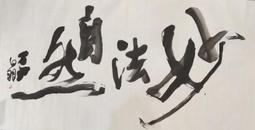 妙法自然